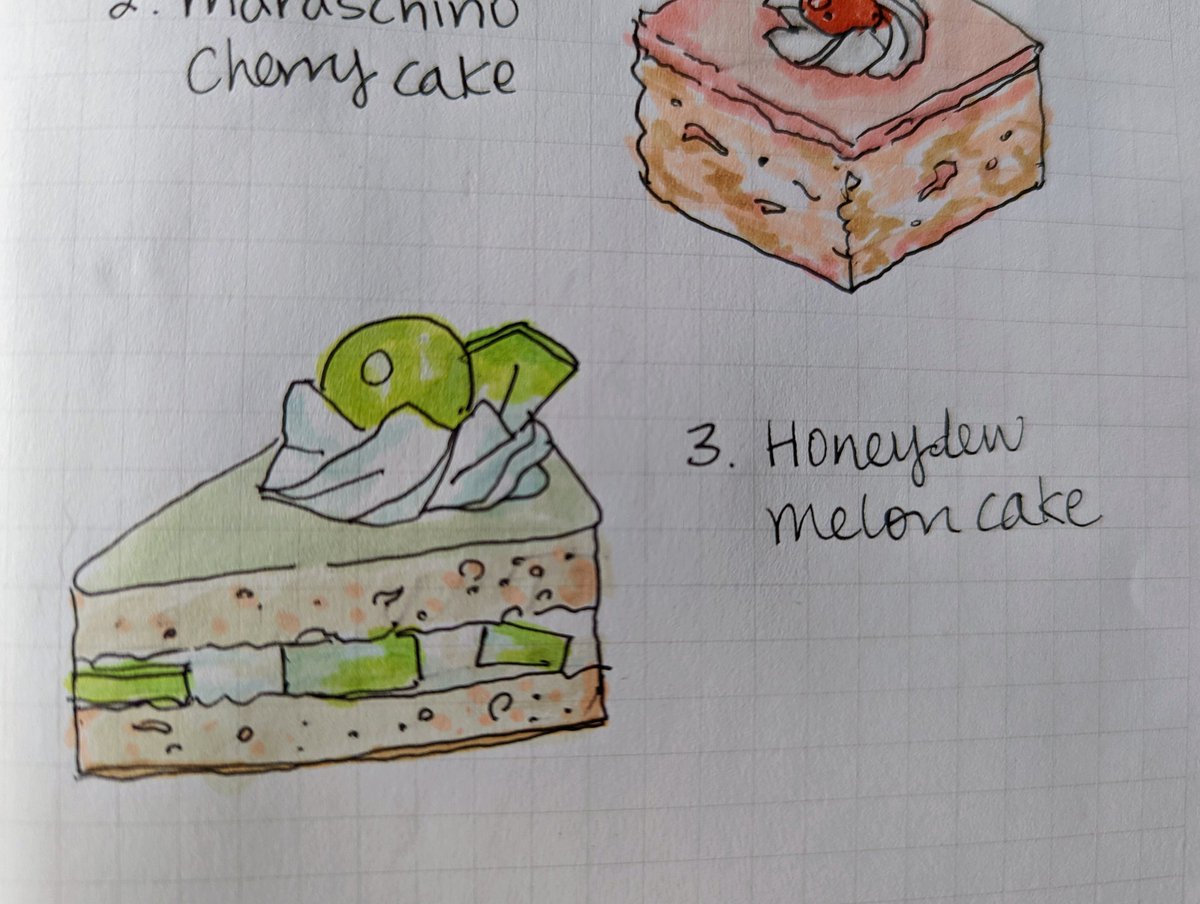 2. maraschino
Cherry cake
3. Honeydew
melon cake